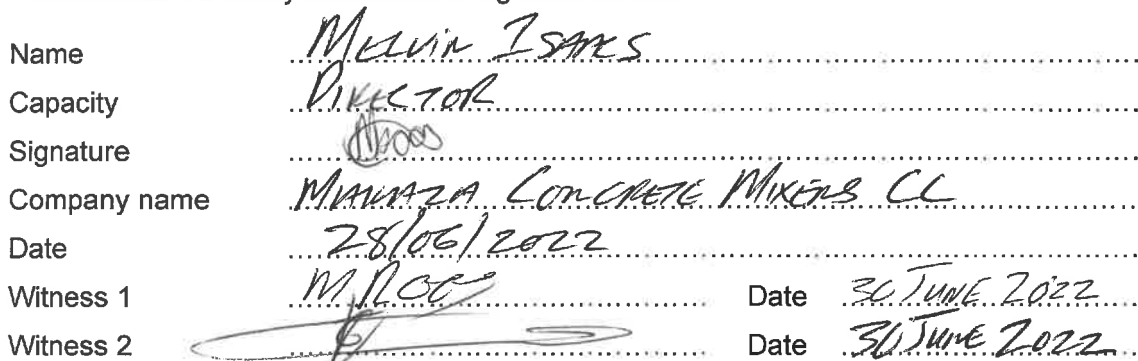 Name Melvin Isaacs
Capacity Director
Signature
Company name Concrete Mixers CC
Date 28/06/2022
Witness 1 Date 30 June 2022
Witness 2 Date 30 June 2022